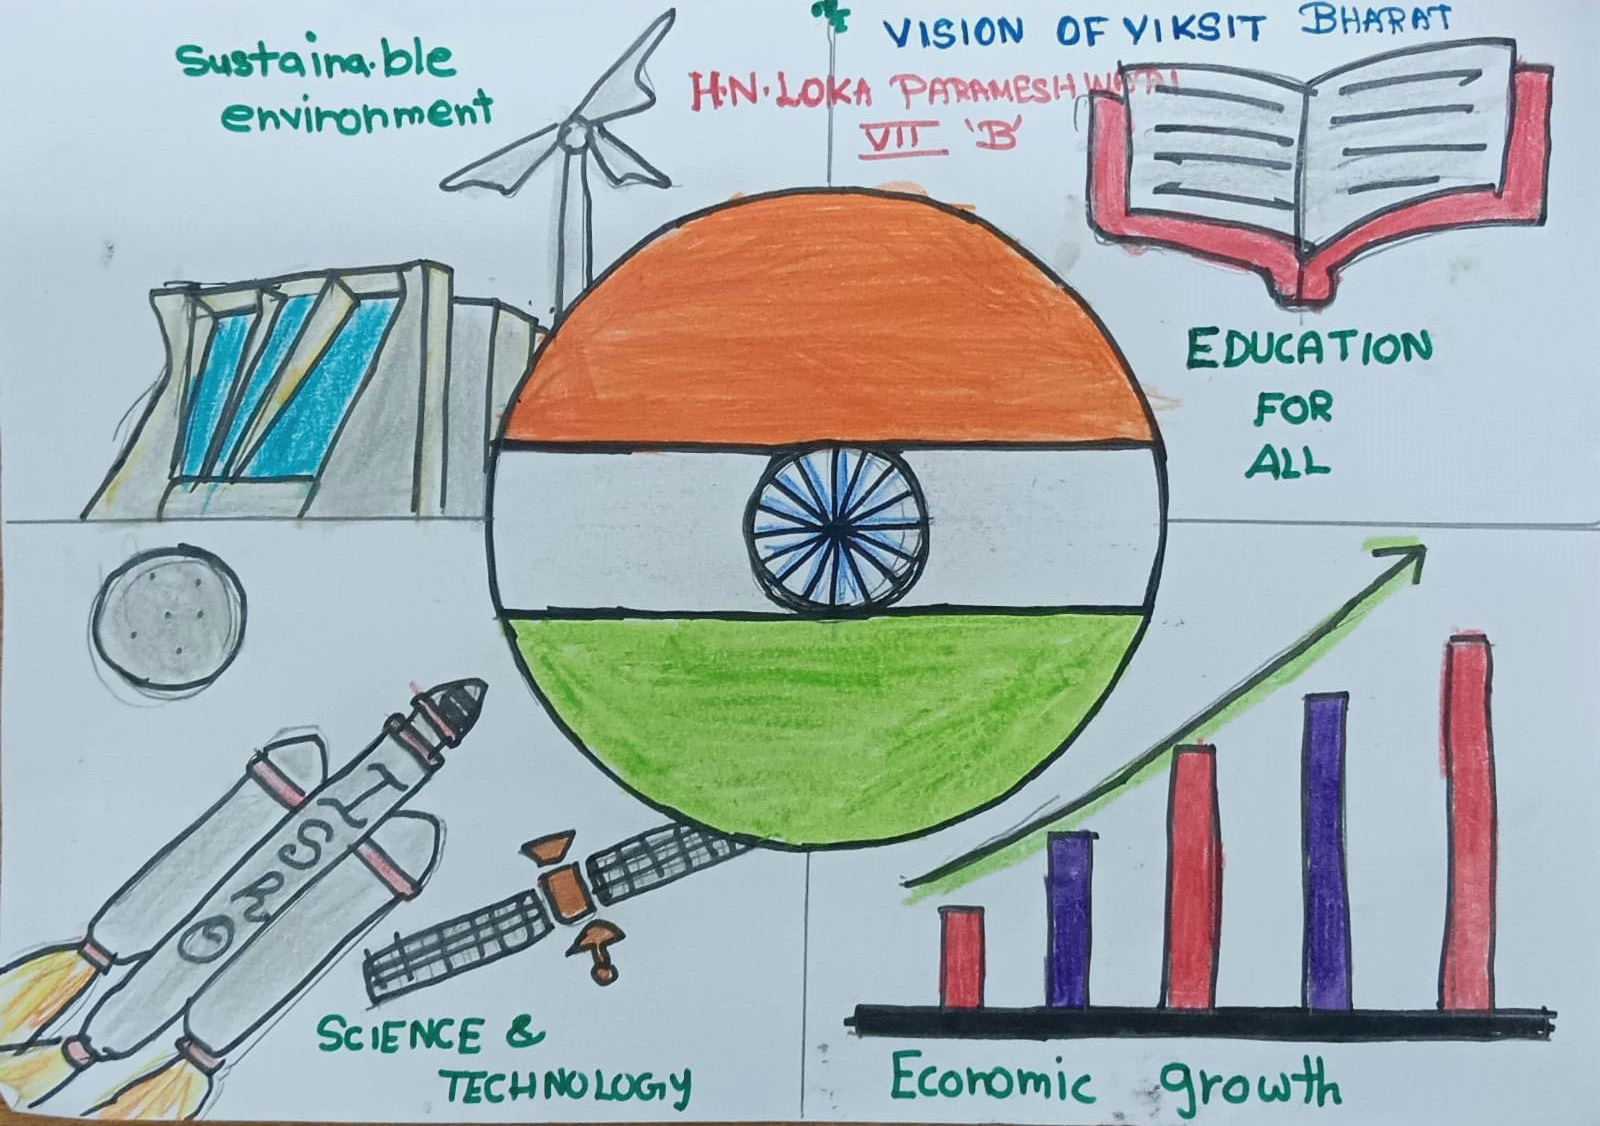 Sustainable
environment
VISION OF VIKSIT BHARAT
H.N.LOKA PARAMESHWARI
VII 'B'
EDUCATION
FOR
ALL
ISRO
SCIENCE &
TECHNOLOGY
Economic growth